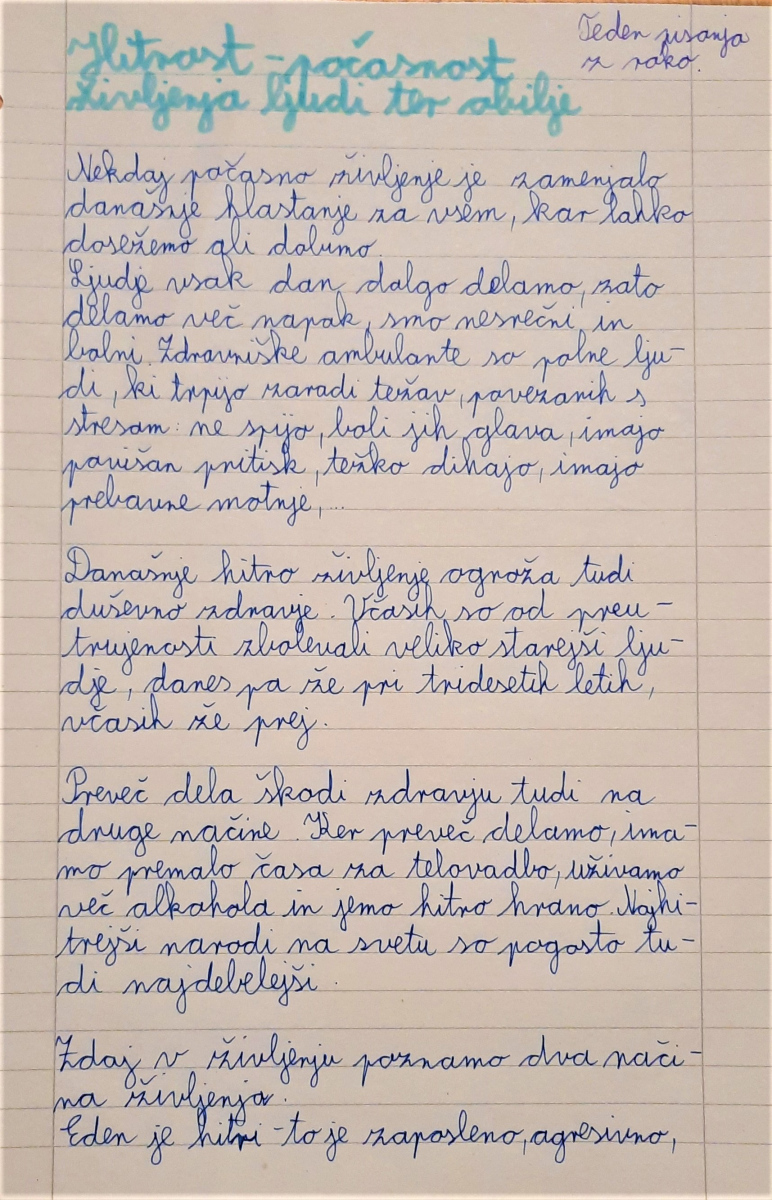 Teden pisanja
z roko.
Hitrost - počasnost
življenja ljudi ter obilje
Nekdaj počasno življenje je zamenjalo
današnje hlastanje za vsem, kar lahko
dosežemo ali dobimo.
Ljudje vsak dan dolgo delamo, zato
delamo več napak, smo nesrečni in
bolni. Zdravniške ambulante so polne lju-
di, ki trpijo zaradi težav, povezanih s
stresom: ne spijo, boli jih glava, imajo
povišan pritisk, težko dihajo, imajo
prebavne motnje,...
Današnje hitro življenje ogroža tudi
duševno zdravje. Včasih so od preu-
trujenosti zbolevali veliko starejši lju-
dje, danes pa že pri tridesetih letih,
včasih že prej.
Preveč dela škodi zdravju tudi na
druge načine. Ker preveč delamo, ima-
mo premalo časa za telovadbo, uživamo
več alkohola in jemo hitro hrano. Najhi-
trejši narodi na svetu so pogosto tu-
di najdebelejši.
Zdaj v življenju poznamo dva nači-
na življenja.
Eden je hitri - to je zaposleno, agresivno,